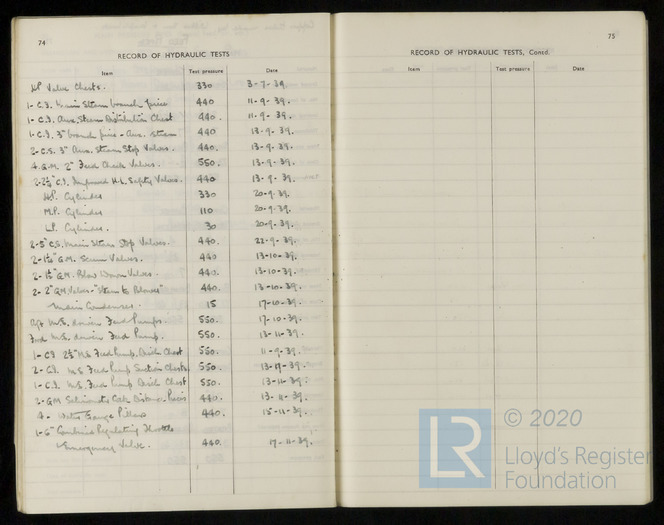 74
RECORD OF HYDRAULIC TESTS
Item Test pressure Date
H.P. Valve Chests. 330 3-7-39.
1-C.I. Main Steam branch piece 440 11-9-39.
1-C.I. Aux. Steam Distribution Chest 440. 11-9-39.
1-C.I. 3" branch piece - Aux. Steam 440 13-9-39.
2-C.S. 3" Aux. Steam Stop Valves. 440. 13-9-39.
4-G.M. 2" Feed Check Valves. 550. 13-9-39.
C.I. Improved H.L. Safety Valves. 440 13-9-39.
H.P. Cylinder 330 20-9-39.
M.P. Cylinder 110 20-9-39.
L.P. Cylinder. 30 20-9-39.
2-5" C.S. Main Steam Stop Valves. 440. 22-9-39.
G.M. Scum Valves. 440 13-10-39.
G.M. Blow Down Valves. 440. 13-10-39.
2-2" G.M. Valves - "Steam to Blower" 440. 13-10-39.
Main Condenser. 15 17-10-39.
M.E. driven Feed Pumps. 550. 17-10-39.
M.E. driven Feed Pump. 550. 13-11-39.
1-C.I. 2½" M.E. Feed Pump Disch Chest 550. 11-9-39.
2-C.I. M.E. Feed Pump Suction Chests 550. 39.
1-C.I. M.E. Feed Pump Disch Chest 550. 13-11-39.
2-G.M. Salinometer Cocks Distance Pieces 440. 13-11-39.
4- Water Gauge Pillars 440. 15-11-39.
1-6" Combined Regulating Throttle
& Emergency Valve. 440. 17-11-39.
75
RECORD OF HYDRAULIC TESTS, Contd.
Item Test pressure Date
LR © 2020
Lloyd's Register
Foundation